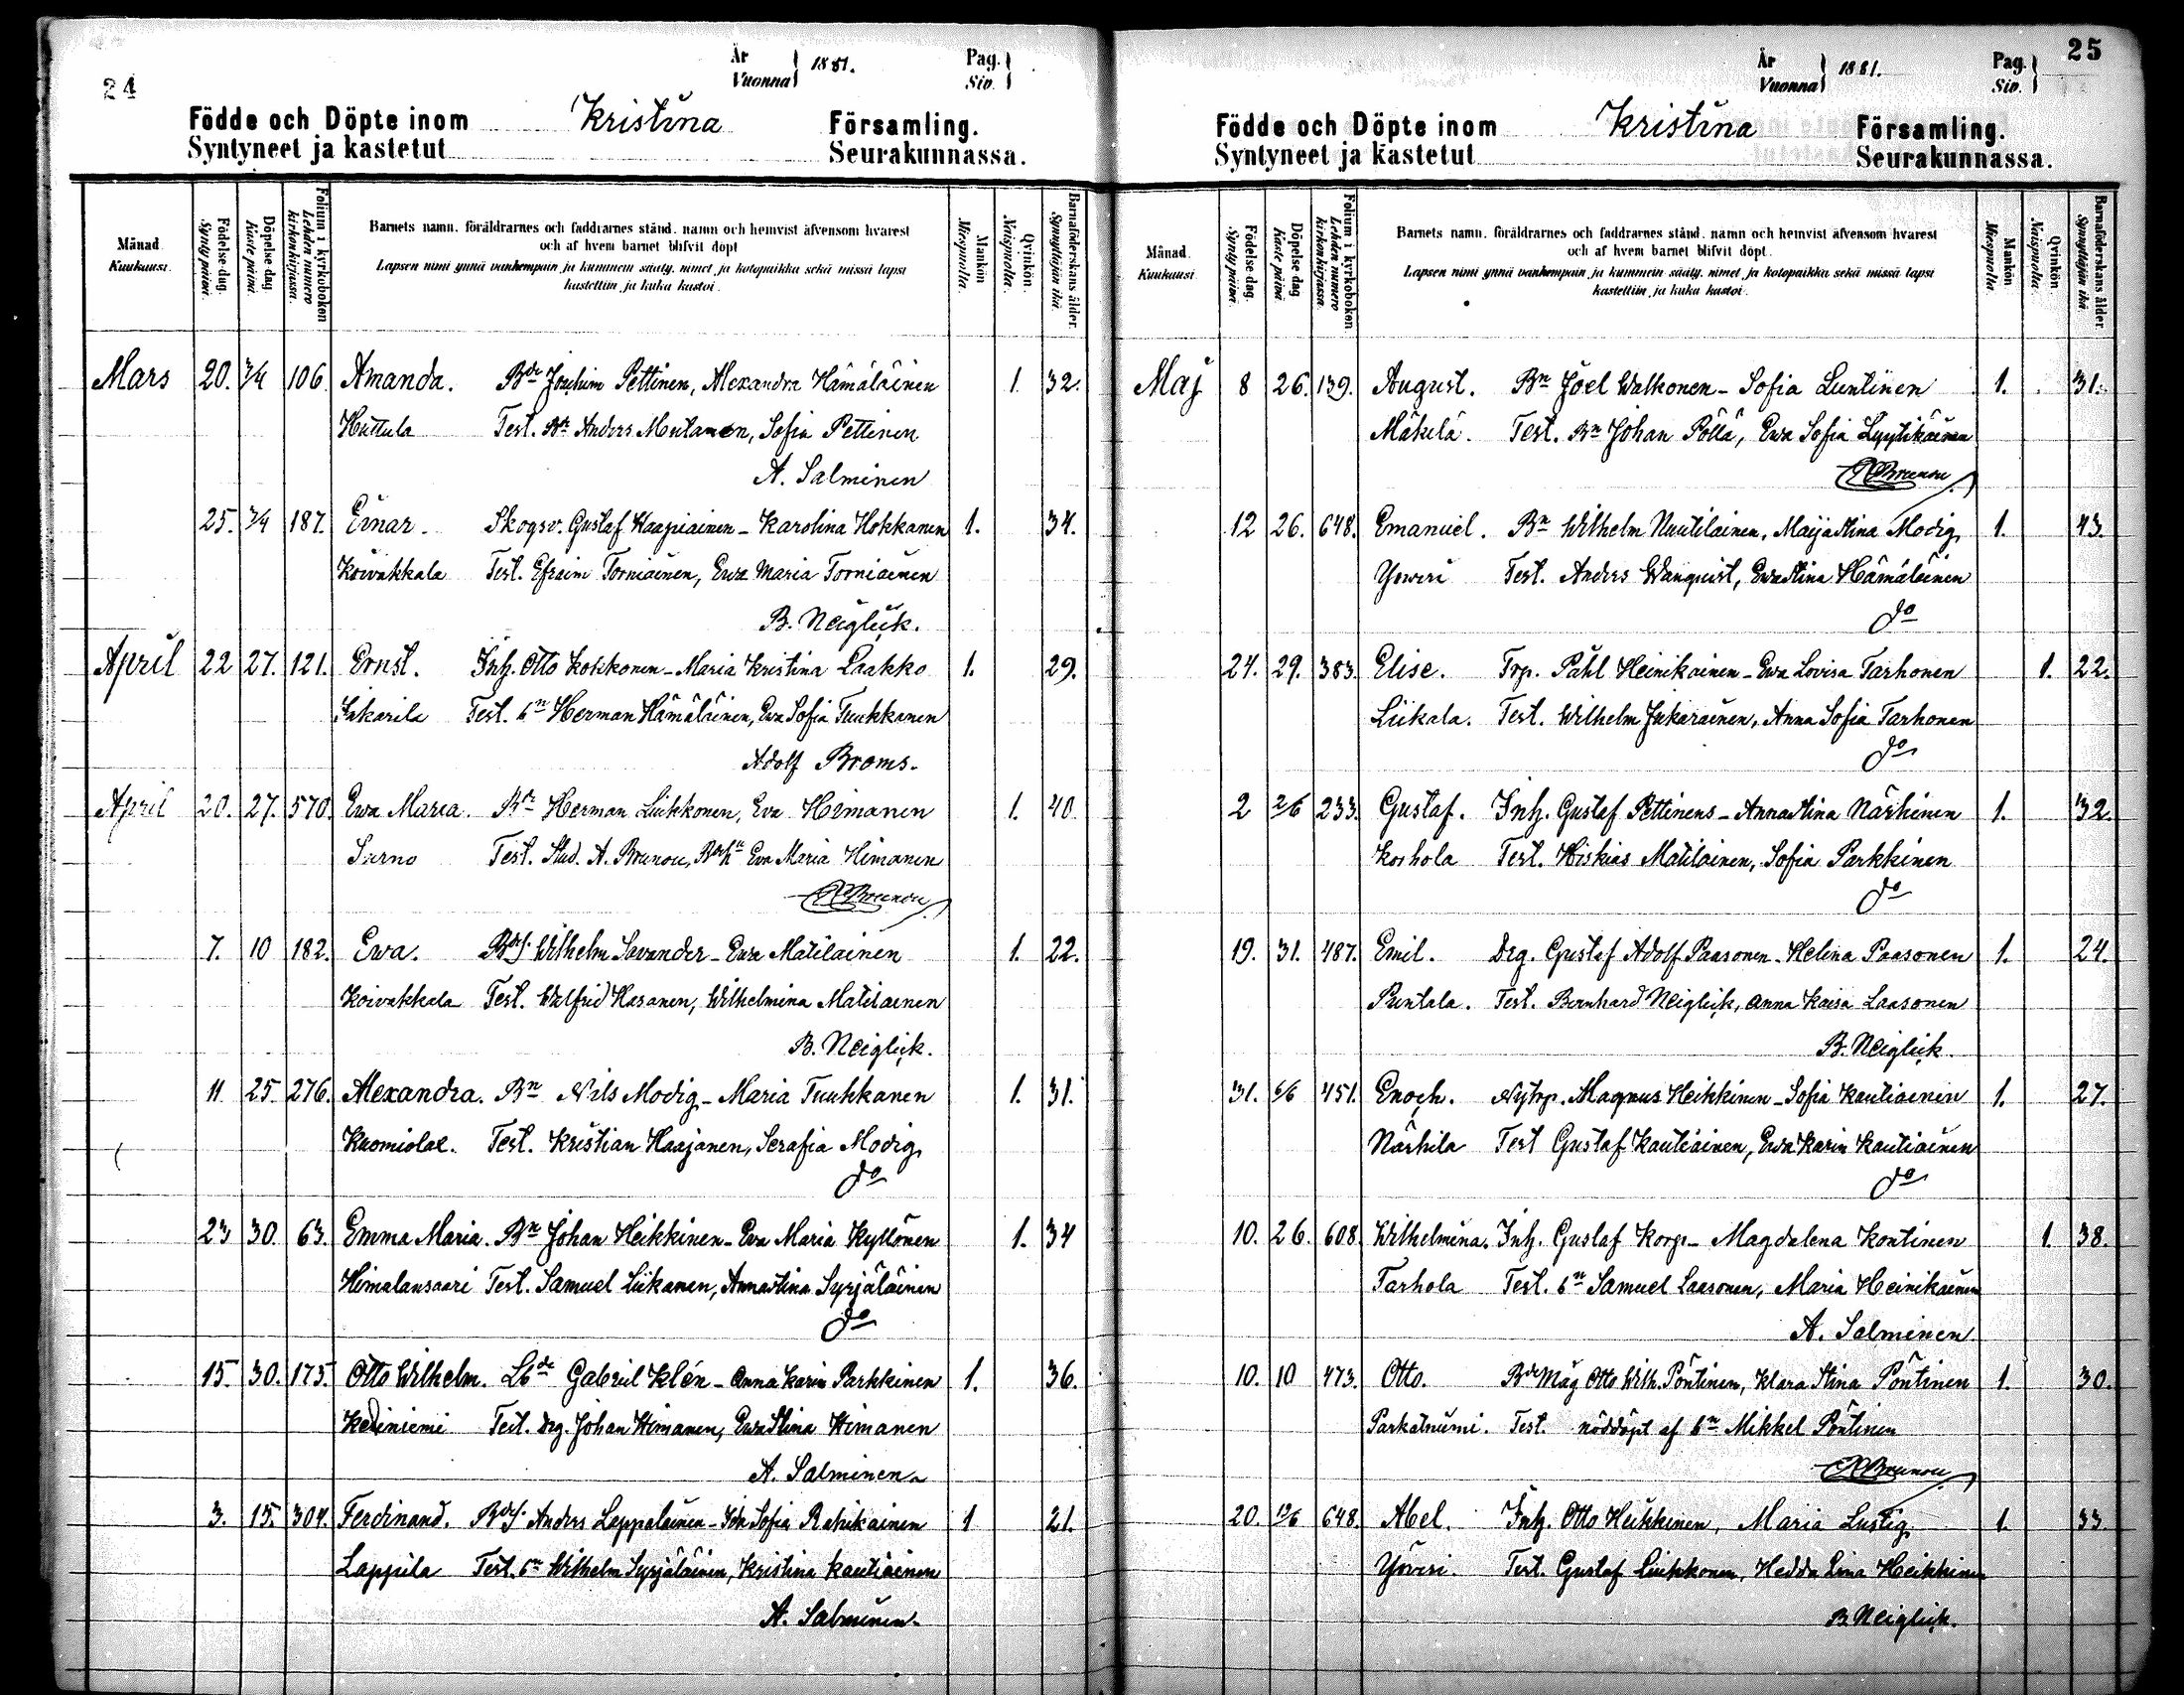 24
År
Vuonna 1881.
Pag.
Siv.
Födde och Döpte inom Kristina Församling.
Syntyneet ja kastetut Seurakunnassa.
Månad. Kuukausi.
Födelse-dag. Synty päivä.
Döpelse dag. Kaste päivä.
Folium i kyrkoboken. Lehden numero kirkonkirjassa.
Barnets namn, föräldrarnes och faddrarnes stånd, namn och hemvist äfvensom hvarest
och af hvem barnet blifvit döpt
Lapsen nimi ynnä vanhempain ja kummein sääty, nimet ja kotopaikka sekä missä lapsi
kastettiin ja kuka kastoi.
Mankön Miespuolia.
Qvinkön. Naispuolia.
Barnaföderskans ålder. Synnyttäjän ikä
Mars 20. 3/4 106. Amanda. Bde Joachim Pettinen, Alexandra Hämäläinen 1. 32.
Huttula Test. Bn Anders Montanen, Sofia Pettinen
A. Salminen
25. 3/4 187. Einar. Skogsv. Gustaf Haapiainen - Karolina Hokkanen 1. 34.
Koivakkala Test. Efraim Torniainen, Ewa Maria Torniainen
B. Neiglick.
April 22 27. 121. Ernst. Inh. Otto Kokkonen - Maria Kristina Laakko 1. 29.
Inkarila Test. bn Herman Hämäläinen, Ewa Sofia Tuukkanen
Adolf Broms.
April 20. 27. 570. Ewa Maria. Bn Herman Liukkonen, Eva Himanen 1. 40.
Surno Test. Stud. A. Brunou, Eva Maria Himanen
A Brunou
7. 10 182. Ewa. Bds. Wilhelm Savander - Ewa Matilainen 1. 22.
Koivakkala Test. Walfrid Hasanen, Wilhelmina Matilainen
B. Neiglick.
11 25. 276. Alexandra. Bn Nils Modig - Maria Tuukkanen 1. 31.
Kuomiolax. Test. Kristian Haajanen, Serafia Modig
do
23 30. 63. Emma Maria. Bn Johan Heikkinen - Eva Maria Kyllönen 1. 34
Himalansaari Test. Samuel Liikanen, Annastina Syrjäläinen
do
15. 30. 175. Otto Wilhelm. Lbde Gabriel Klén - Anna Karin Parkkinen 1. 36.
Kediniemi Test. Drg. Johan Himanen, Ewa Stina Himanen
A. Salminen.
3. 15. 304. Ferdinand. Bds. Anders Leppäläinen - Sofia Rahikainen 1 21.
Lappila Test. bn Wilhelm Syrjäläinen, Kristina Kautiainen
A. Salminen.
25
År
Vuonna 1881.
Pag.
Siv.
Födde och Döpte inom Kristina Församling.
Syntyneet ja kastetut Seurakunnassa.
Månad. Kuukausi.
Födelse dag. Synty päivä.
Döpelse dag Kaste päivä
Folium i kyrkoboken. Lehden numero kirkonkirjassa.
Barnets namn, föräldrarnes och faddrarnes stånd, namn och hemvist äfvensom hvarest
och af hvem barnet blifvit döpt.
Lapsen nimi ynnä vanhempain ja kummein sääty, nimet ja kotopaikka sekä missä lapsi
kastettiin ja kuka kastoi.
Mankön Miespuolia.
Qvinkön Naispuolia.
Barnaföderskans ålder. Synnyttäjän ikä
Maj 8 26. 139. August. Bn Joel Walkonen - Sofia Luntinen 1. 31.
Mäkelä. Test. Bn Johan Pöllä, Ewa Sofia Lyytikäinen
A Brunou
12 26. 648. Emanuel. Bn Wilhelm Nuutilainen, Maija Stina Modig 1. 43.
Yöveri Test. Anders Wanquist, Ewa Stina Hämäläinen
do
24. 29. 383. Elise. Trp. Påhl Heinikainen - Ewa Lovisa Tarhonen 1. 22.
Liikala. Test. Wilhelm Inkarainen, Anna Sofia Tarhonen
do
2 2/6 233. Gustaf. Inh. Gustaf Pettinens - Anna Stina Närhinen 1. 32.
Korhola Test. Hiskias Matilainen, Sofia Parkkinen
do
19. 31. 487. Emil. Drg. Gustaf Adolf Paasonen - Helena Paasonen 1. 24.
Puntala. Test. Bernhard Neiglick, Anna Kaisa Laasonen
B. Neiglick.
31. 6/6 451. Enoch. Nytrp. Magnus Heikkinen - Sofia Kautiainen 1. 27.
Närhilä Test Gustaf Kautiainen, Ewa Karin Kautiainen
do
10. 26. 608. Wilhelmina. Inh. Gustaf Korp - Magdalena Kontinen 1. 38.
Tarhola Test. bn Samuel Laasonen, Maria Heinikainen
A. Salminen
10. 10 473. Otto. Bde Måg Otto Wilh. Pöntinen, Klara Stina Pöntinen 1. 30.
Parkatnumi. Test. nöddöpt af bn Mikkel Pöntinen
A Brunou
20. 12/6 648. Abel. Inh. Otto Heikkinen, Maria Lustig 1. 33.
Yöveri. Test. Gustaf Liukkonen, Hedda Lena Heikkinen
B. Neiglick.